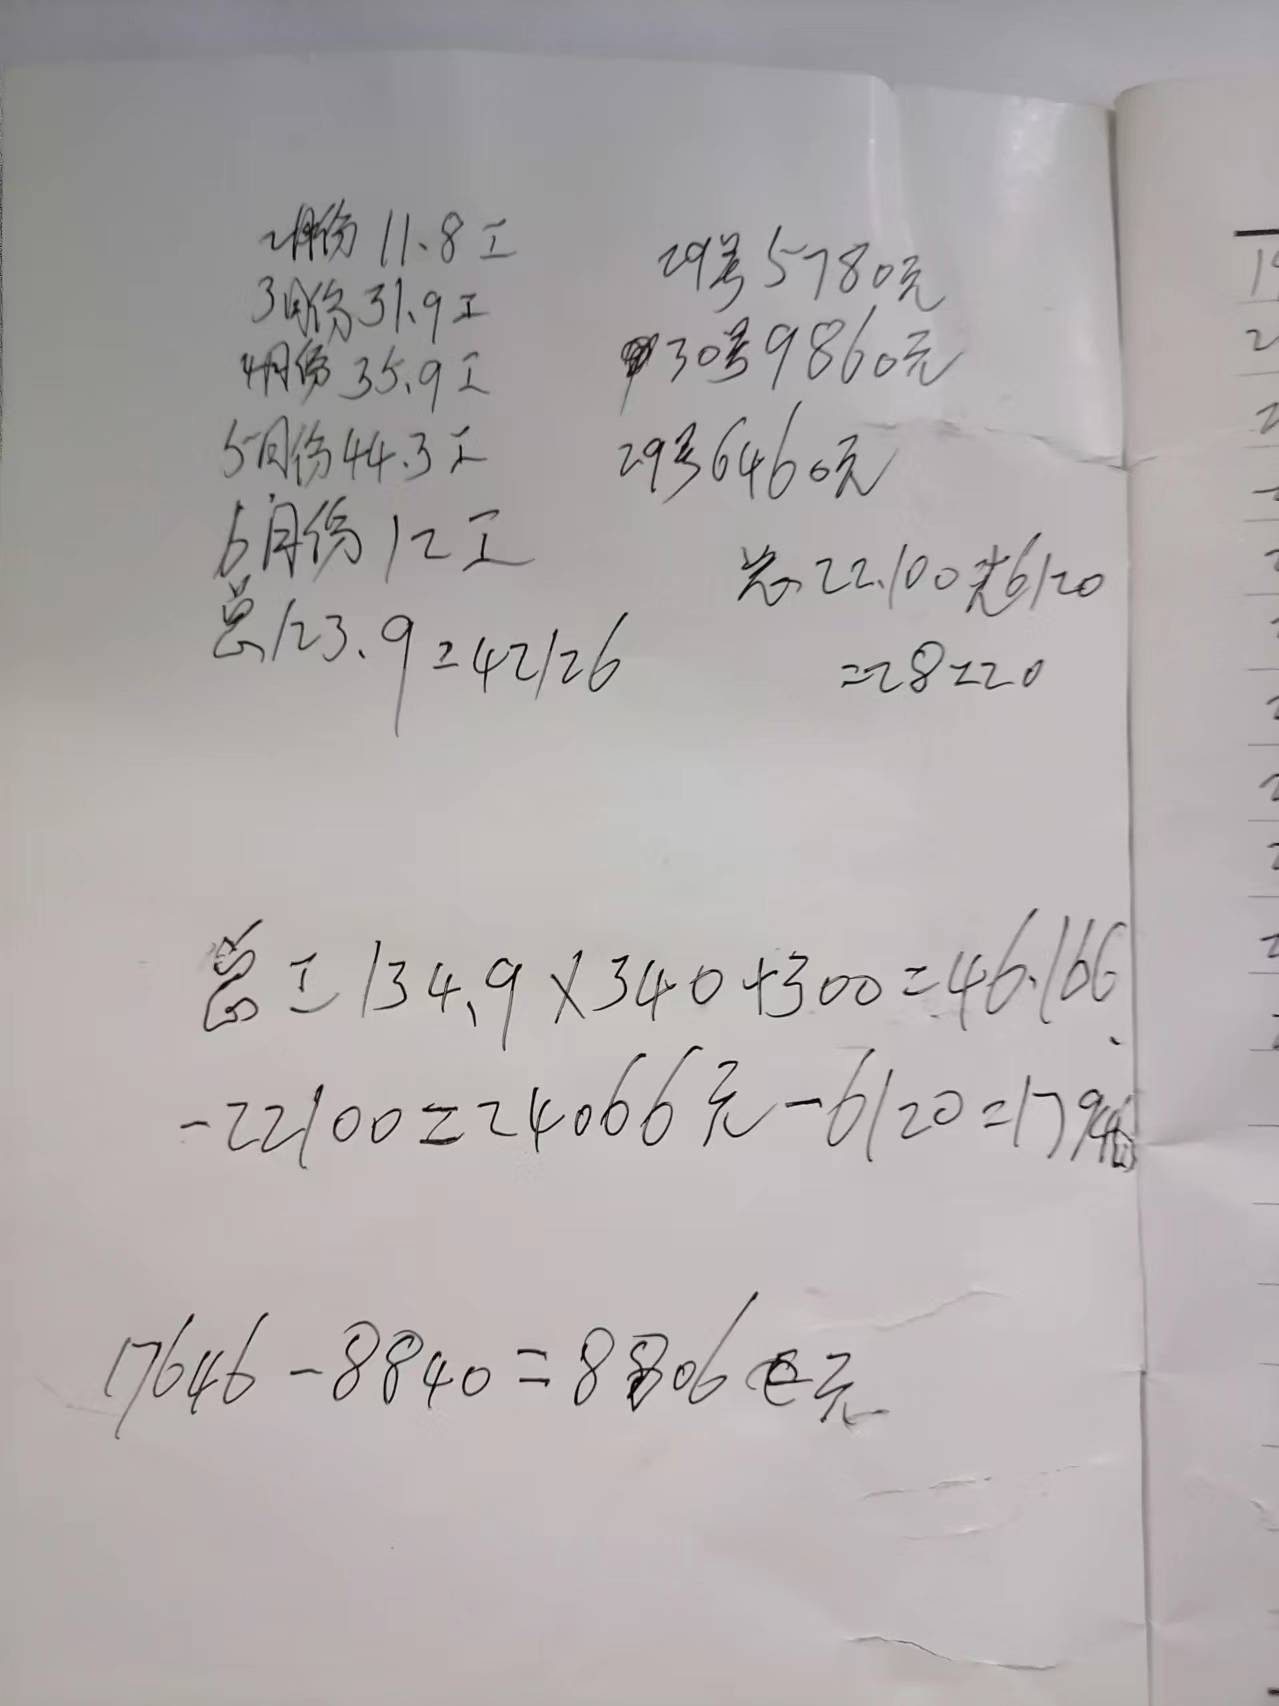 2月份 11.8工
3月份 31.9工
4月份 35.9工
5月份 44.3工
6月份 12工
总 123.9=42126
29号 5780元
30号 9860元
29号 6460元
总 22.100 6120
=28220
总工 134.9×340+300=46.166
-22100=24066元-6120=179
17646-8840=8806元